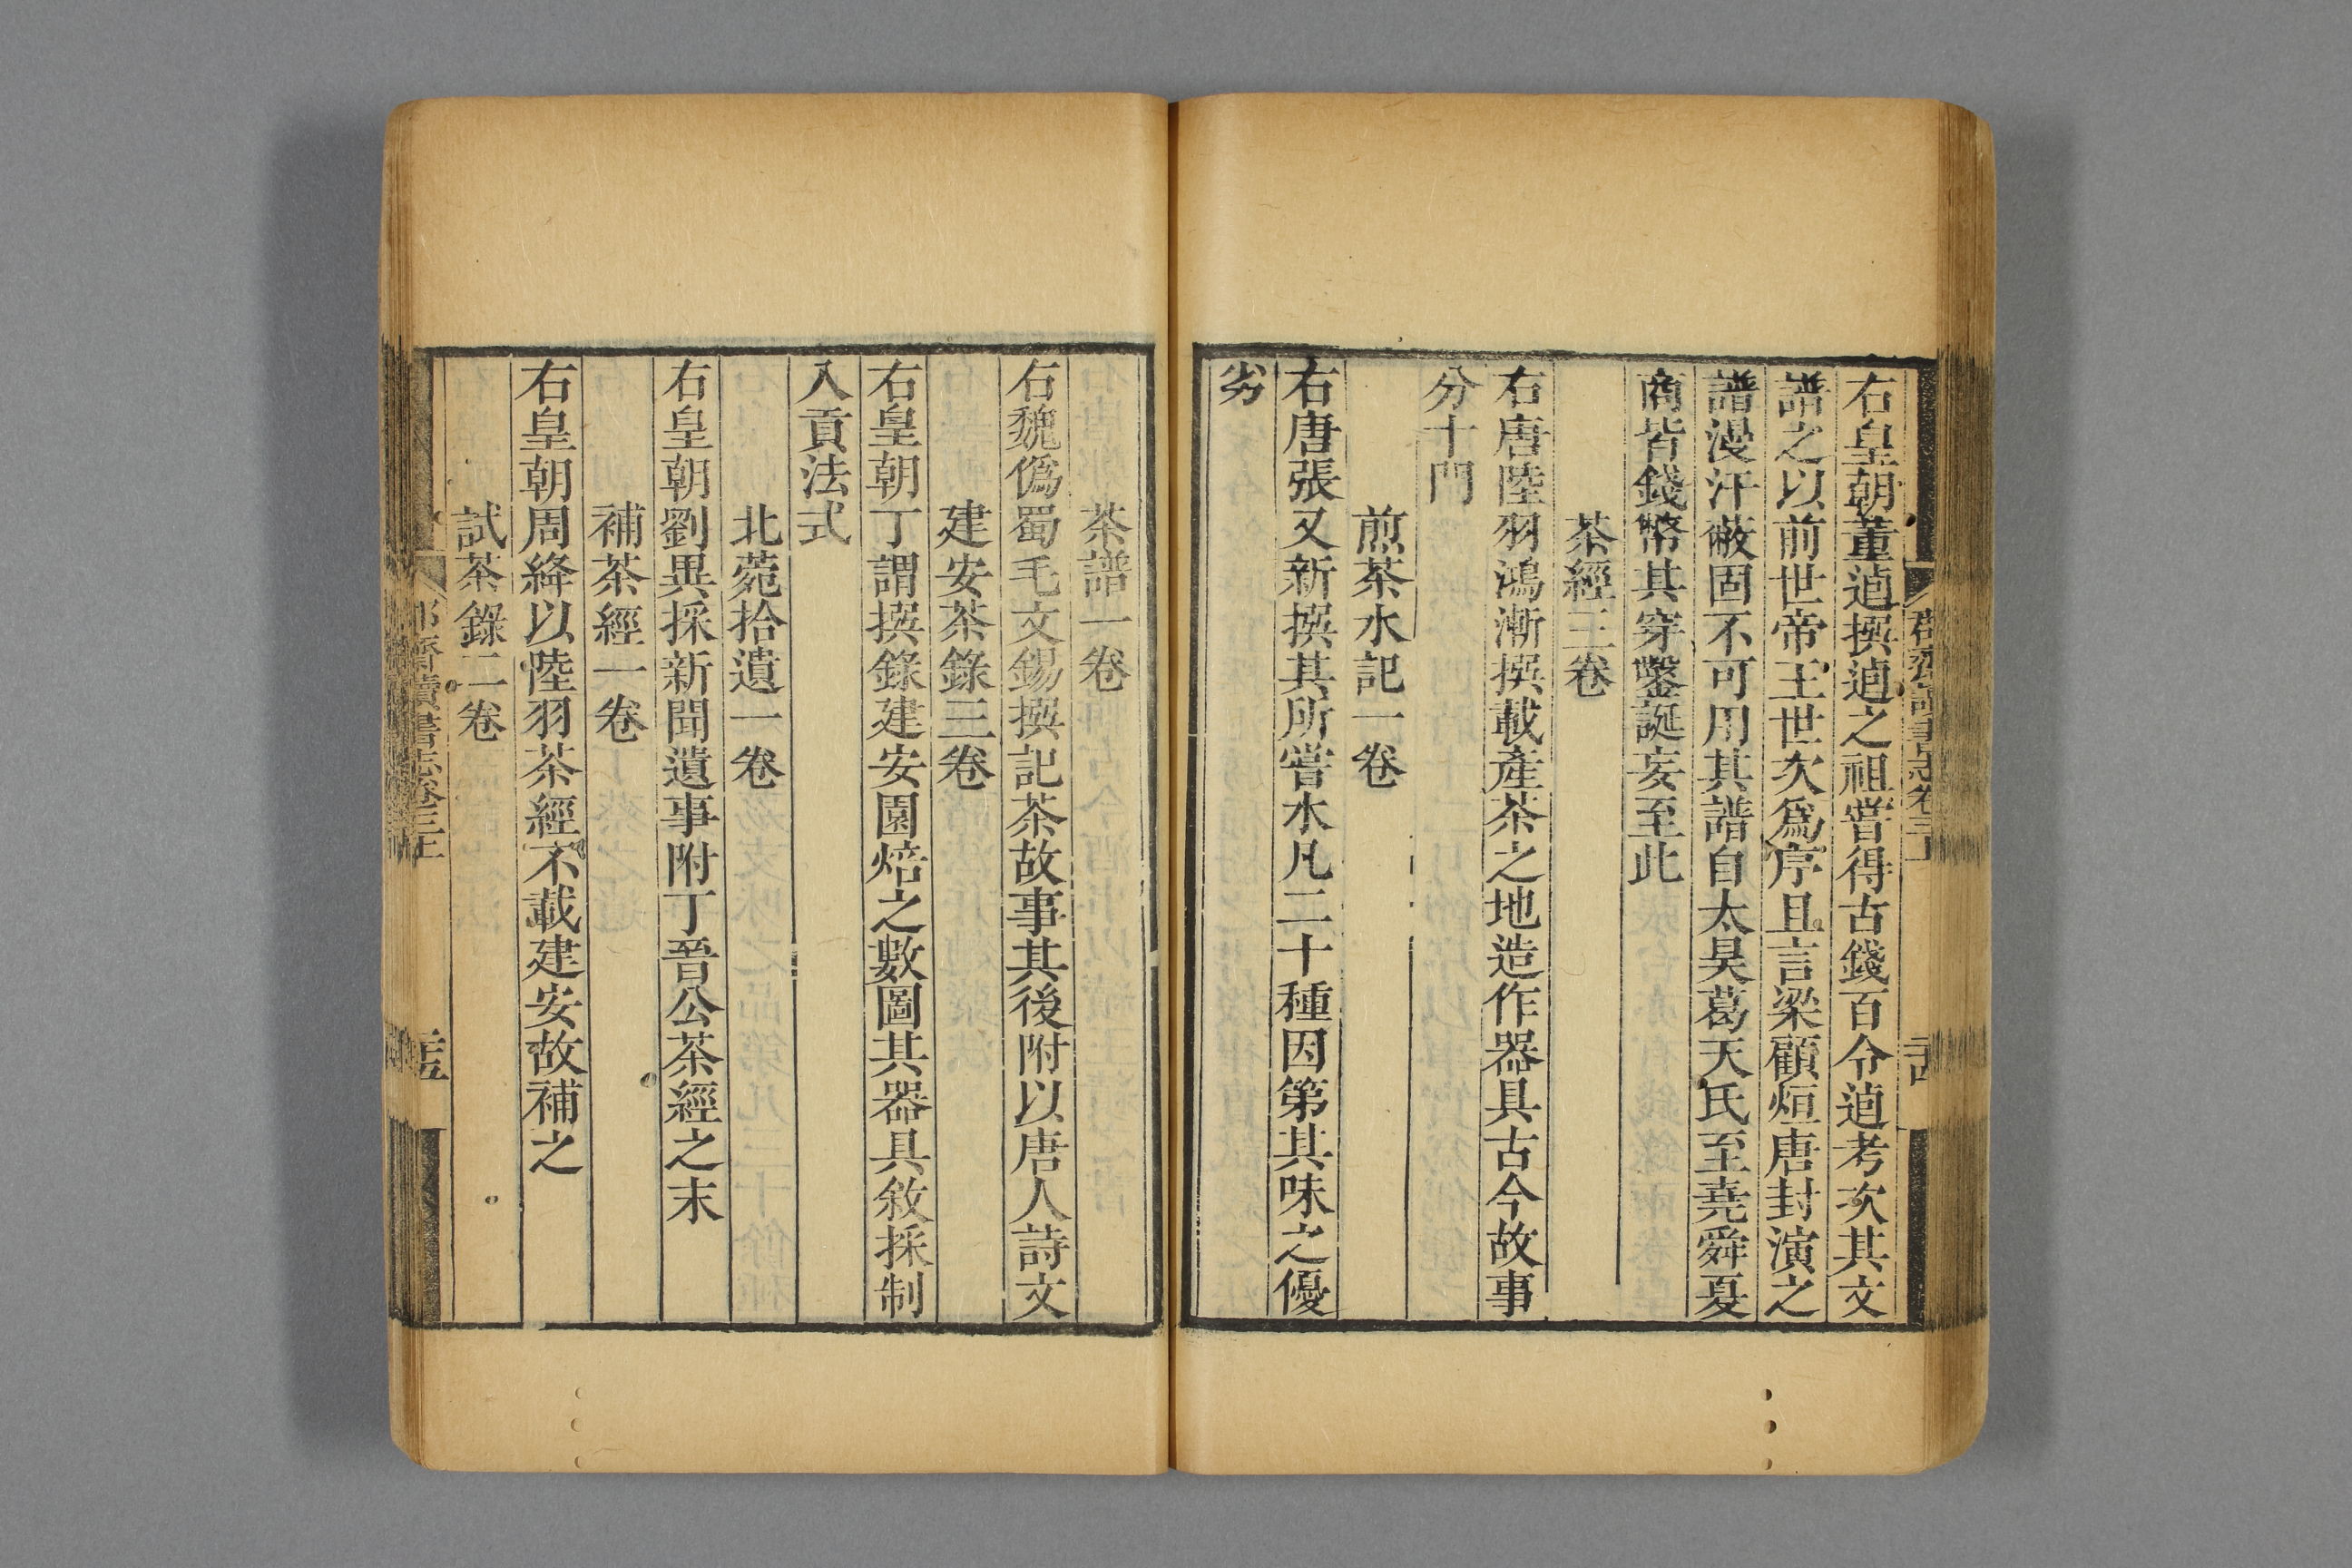 右皇朝董逌撰逌之祖嘗得古錢百令逌考次其文
譜之以前世帝王世次爲序且言梁顧烜唐封演之
譜漫汗蔽固不可用其譜自太昊葛天氏至堯舜夏
商皆錢幣其穿鑿誕妄至此
茶經三卷
右唐陸羽鴻漸撰載產茶之地造作器具古今故事
分十門
煎茶水記一卷
右唐張又新撰其所嘗水凡二十種因第其味之優
劣
茶譜一卷
右魏僞蜀毛文錫撰記茶故事其後附以唐人詩文
建安茶錄三卷
右皇朝丁謂撰錄建安園焙之數圖其器具敘採制
入貢法式
北菀拾遺一卷
右皇朝劉異採新聞遺事附丁晉公茶經之末
補茶經一卷
右皇朝周絳以陸羽茶經不載建安故補之
試茶錄二卷
郡齋讀書志卷三上